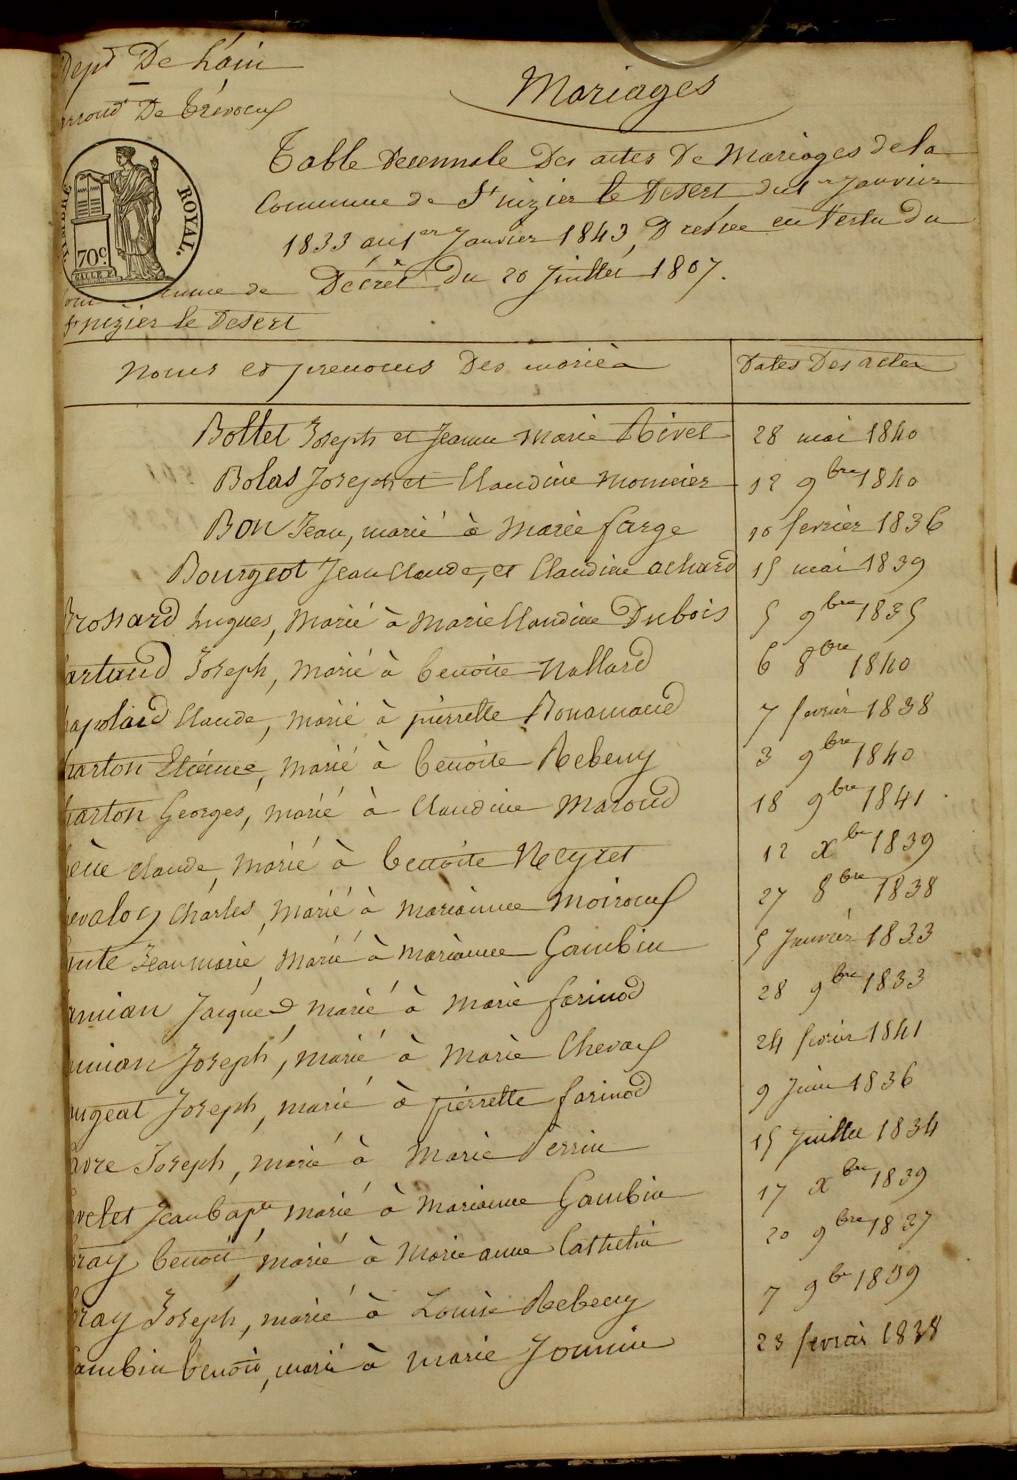 Dept De L'ain
Mariages
arrond De Trévoux
Table Decennale Des actes De Mariages de la
Commune de St nizier le Desert du 1er Janvier
1833 au 1er Janvier 1843, Dressée en Vertu Du
Décret Du 20 Juillet 1807.
TIMBRE ROYAL.
70c
Commune de
St nizier le Desert
Noms et prenoms Des mariés
Dates Des actes
Bollet Joseph et Jeanne Marie Rivet 28 mai 1840
Bolas Joseph et Claudine Monnier 12 9bre 1840
Bon Jean, marié à Marie farge 10 fevrier 1836
Bourgeot Jean Claude, et Claudine achard 15 mai 1839
Brossard hugues, Marié à Marie Claudine Dubois 5 9bre 1835
artaud Joseph, Marié à benoite Nallard 6 8bre 1840
Claude, Marié à pierrette Bonamand 7 fevrier 1838
harton Etienne, Marié à benoite Rebeny 3 9bre 1840
harton Georges, marié à Claudine Maroud 18 9bre 1841
Claude, Marié à benoite Neyret 12 xbre 1839
Charles, Marié à Marianne Moiroux 27 8bre 1838
Jean marie, Marié à Marianne Gambin 5 Janvier 1833
amian Jacques, marié à Marie farinod 28 9bre 1833
amian Joseph, marié à Marie Chevax 24 fevrier 1841
ugeat Joseph, marié à pierrette farinod 9 Juin 1836
avre Joseph, marié à Marie Perrin 15 Juillet 1834
Jean bapte, marié à Marianne Gambin 17 xbre 1839
ray benoit, marié à Marie anne Cathelin 20 9bre 1837
ray Joseph, marié à Louise Rebeny 7 9bre 1839
ambin benoit, marié à Marie Jomin 23 fevrier 1838